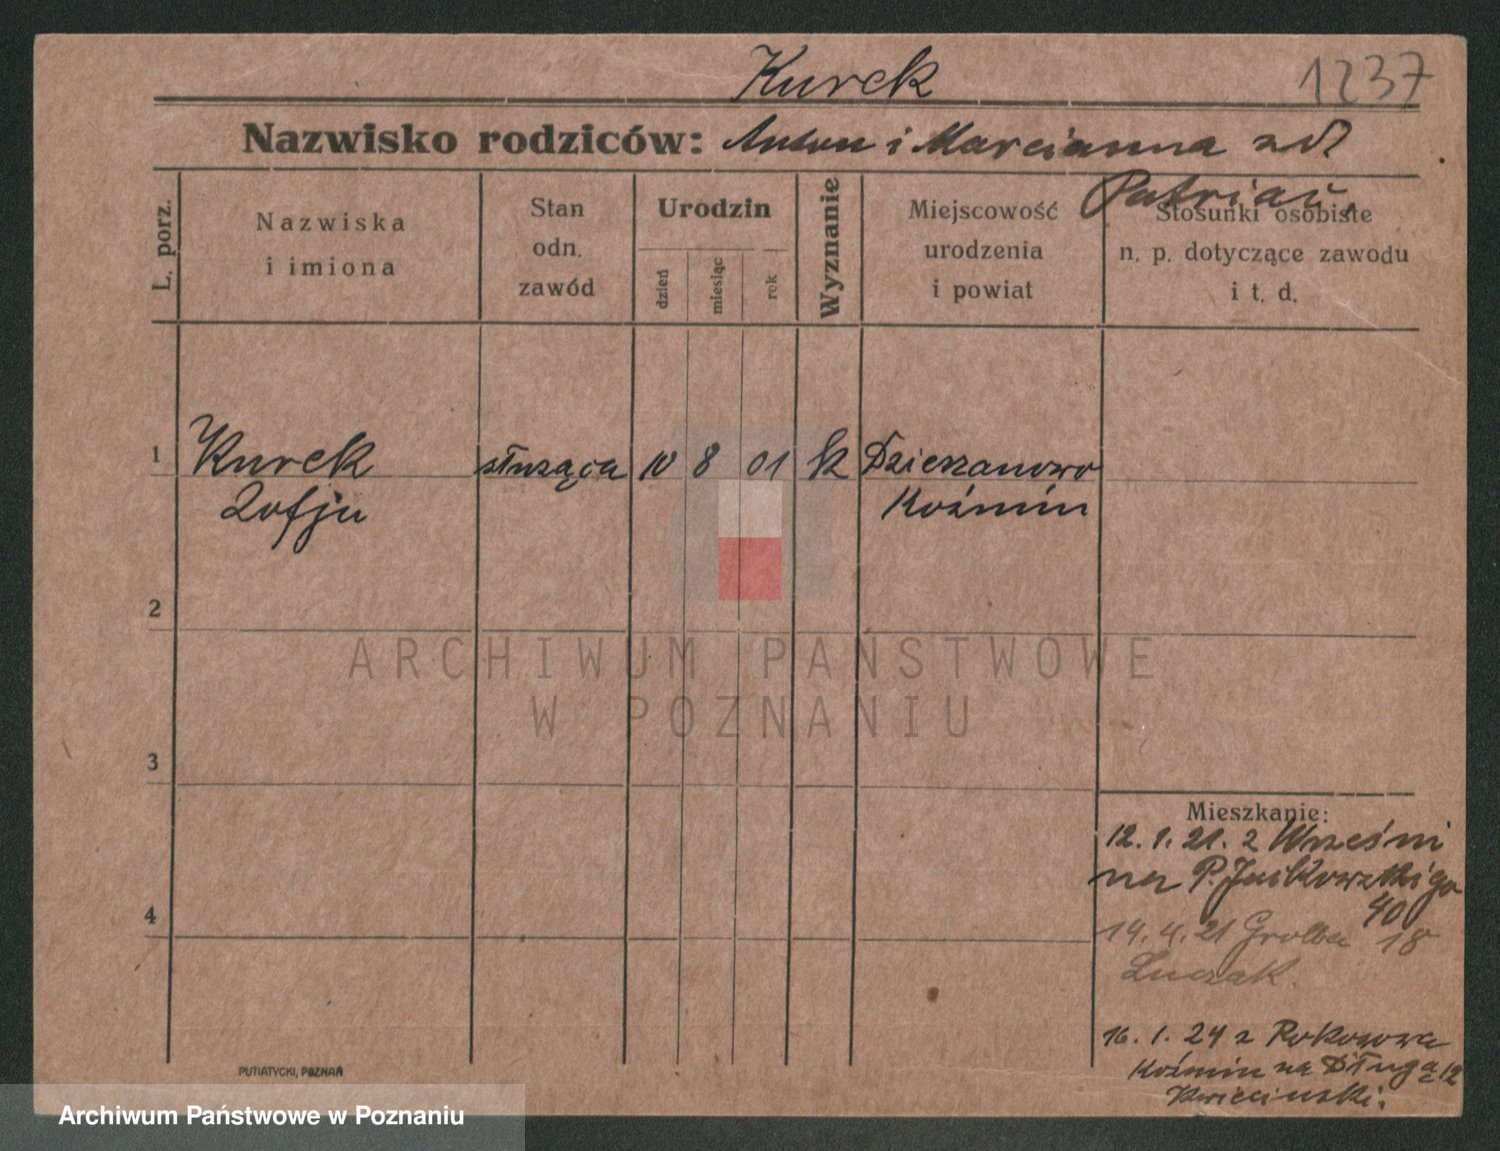 Kurek
1237
Nazwisko rodziców: Anton i Marcianna zd
Patriak
L. porz.
Nazwiska
i imiona
Stan
odn.
zawód
Urodzin
dzień
miesiąc
rok
Wyznanie
Miejscowość
urodzenia
i powiat
Stosunki osobiste
n. p. dotyczące zawodu
i t. d.
1 Kurek służąca 10 8 01 k Dzierzanowo
Zofju Koźmin
2
3
4
ARCHIWUM PAŃSTWOWE
W POZNANIU
Mieszkanie:
12. 1. 21. z Wrześni
na P. Jackowskiego
40
14. 4. 21 Grobla 18
Luczak
16. 1. 24 z Rokosowa
Koźmin na Długą 12
Kwieciński.
PUTIATYCKI, POZNAŃ
Archiwum Państwowe w Poznaniu